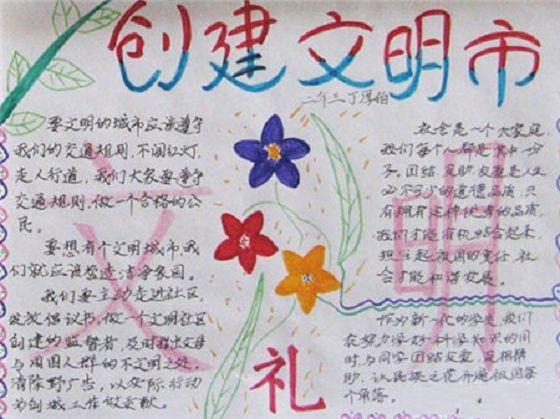 创建文明市
二年三丁淳伯
要文明的城市应该遵守
我们的交通规则,不闯红灯,
走人行道,我们大家要遵守
交通规则。做一个合格的公
民。
要想有个文明城市,我
们就应该营造洁净家园。
我们要主动走进社区,
发放倡议书,做一个文明社区
创建的监督者,及时指出父母
与周围人群的不文明之处。
清除野广告,以实际行动
为创城工作做贡献。
社会是一个大家庭
我们每个人都是其中一份
子。团结、友助、友爱是人生
必不可少的道德品质,只
有拥有这种优秀的品质,
我们才能有机结合起来,
担立起祖国的责任,社
会才能和谐发展。
作为新一代的学生,我们
在努力学好科学知识的同
时,与同学团结友爱,互相帮
助,让民族之花开遍祖国每
个角落。
文
明
礼